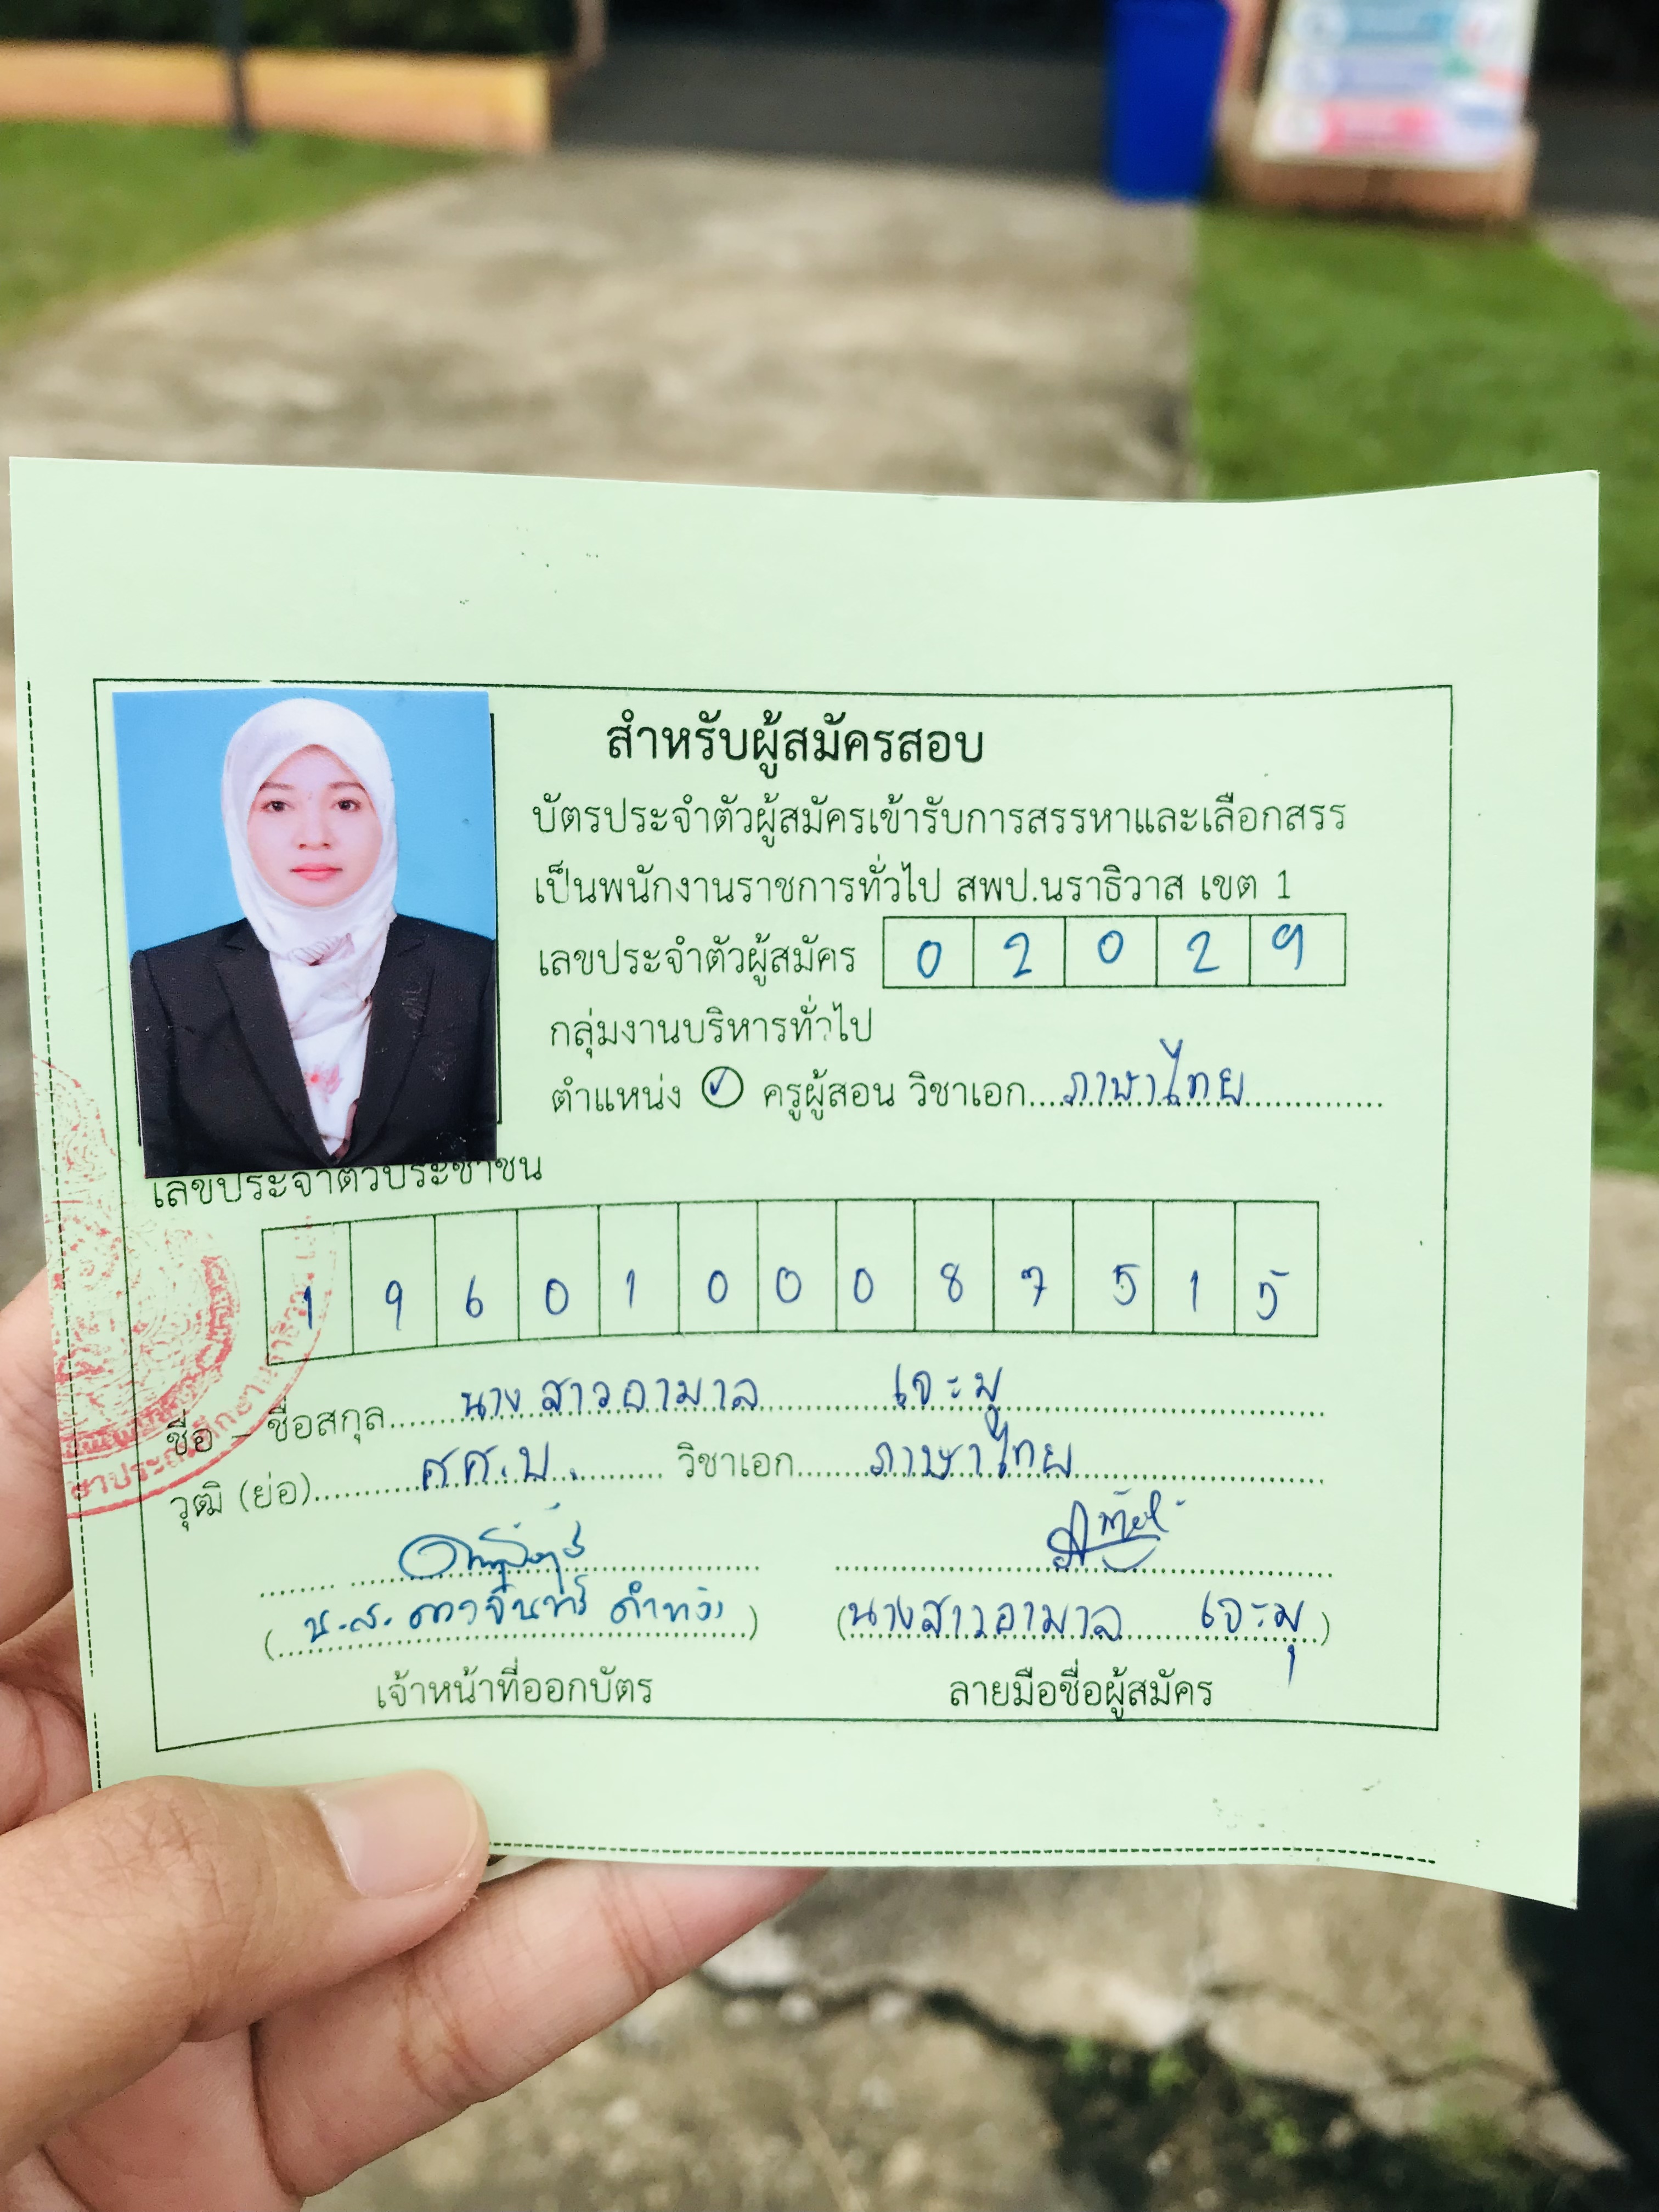 สำหรับผู้สมัครสอบ
บัตรประจำตัวผู้สมัครเข้ารับการสรรหาและเลือกสรร
เป็นพนักงานราชการทั่วไป สพป.นราธิวาส เขต 1
เลขประจำตัวผู้สมัคร 0 2 0 2 9
กลุ่มงานบริหารทั่วไป
ตำแหน่ง ครูผู้สอน วิชาเอก....ภาษาไทย..............
เลขประจำตัวประชาชน
1 9 6 0 1 0 0 0 8 7 5 1 5
ชื่อ – ชื่อสกุล.......นางสาวอามาล เจะมู..............
วุฒิ (ย่อ)........ศศ.บ............ วิชาเอก........ภาษาไทย..............
(น.ส. ดวงจันทร์ ดำทอง) (นางสาวอามาล เจะมุ)
เจ้าหน้าที่ออกบัตร ลายมือชื่อผู้สมัคร